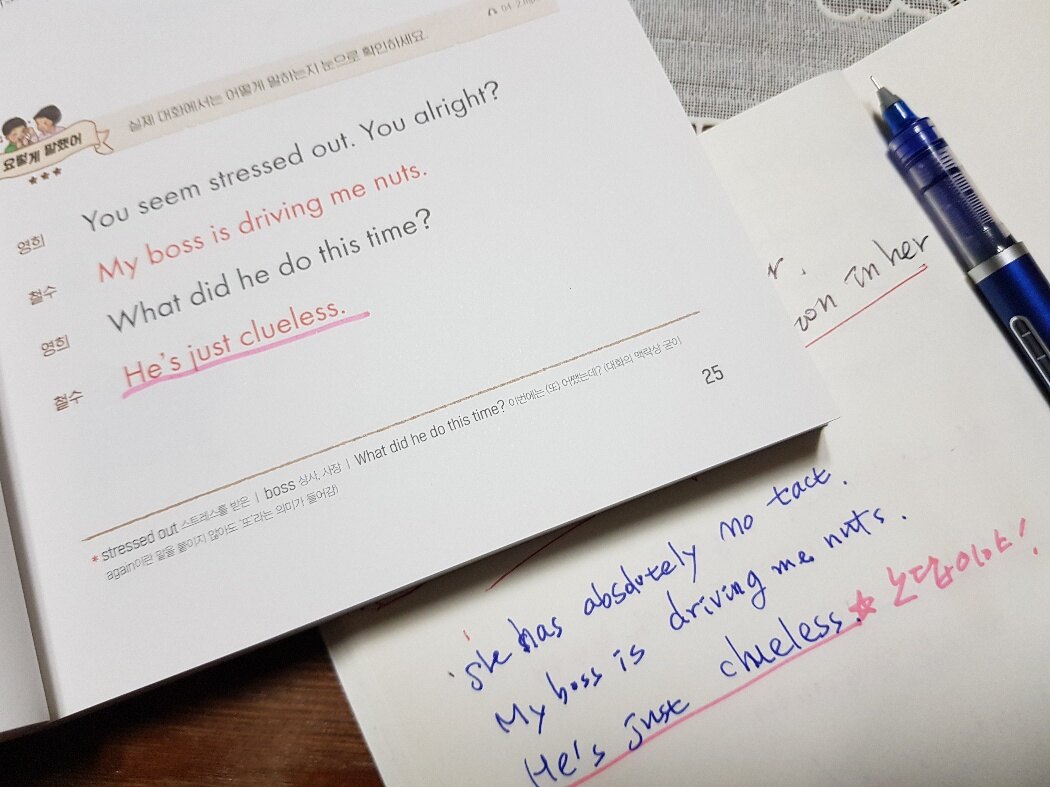 04-2.mp3
실제 대화에서는 어떻게 말하는지 눈으로 확인하세요.
요렇게 말했어
★★★
영희 You seem stressed out. You alright?
철수 My boss is driving me nuts.
영희 What did he do this time?
철수 He's just clueless.
* stressed out 스트레스를 받은 | boss 상사, 사장 | What did he do this time? 이번에는 (또) 어쨌는데? (대화의 맥락상 굳이
again이란 말을 붙이지 않아도 '또'라는 의미가 들어감)
25
in her
she has absolutely no tact.
My boss is driving me nuts.
He's just clueless. ☆ 노답이야!